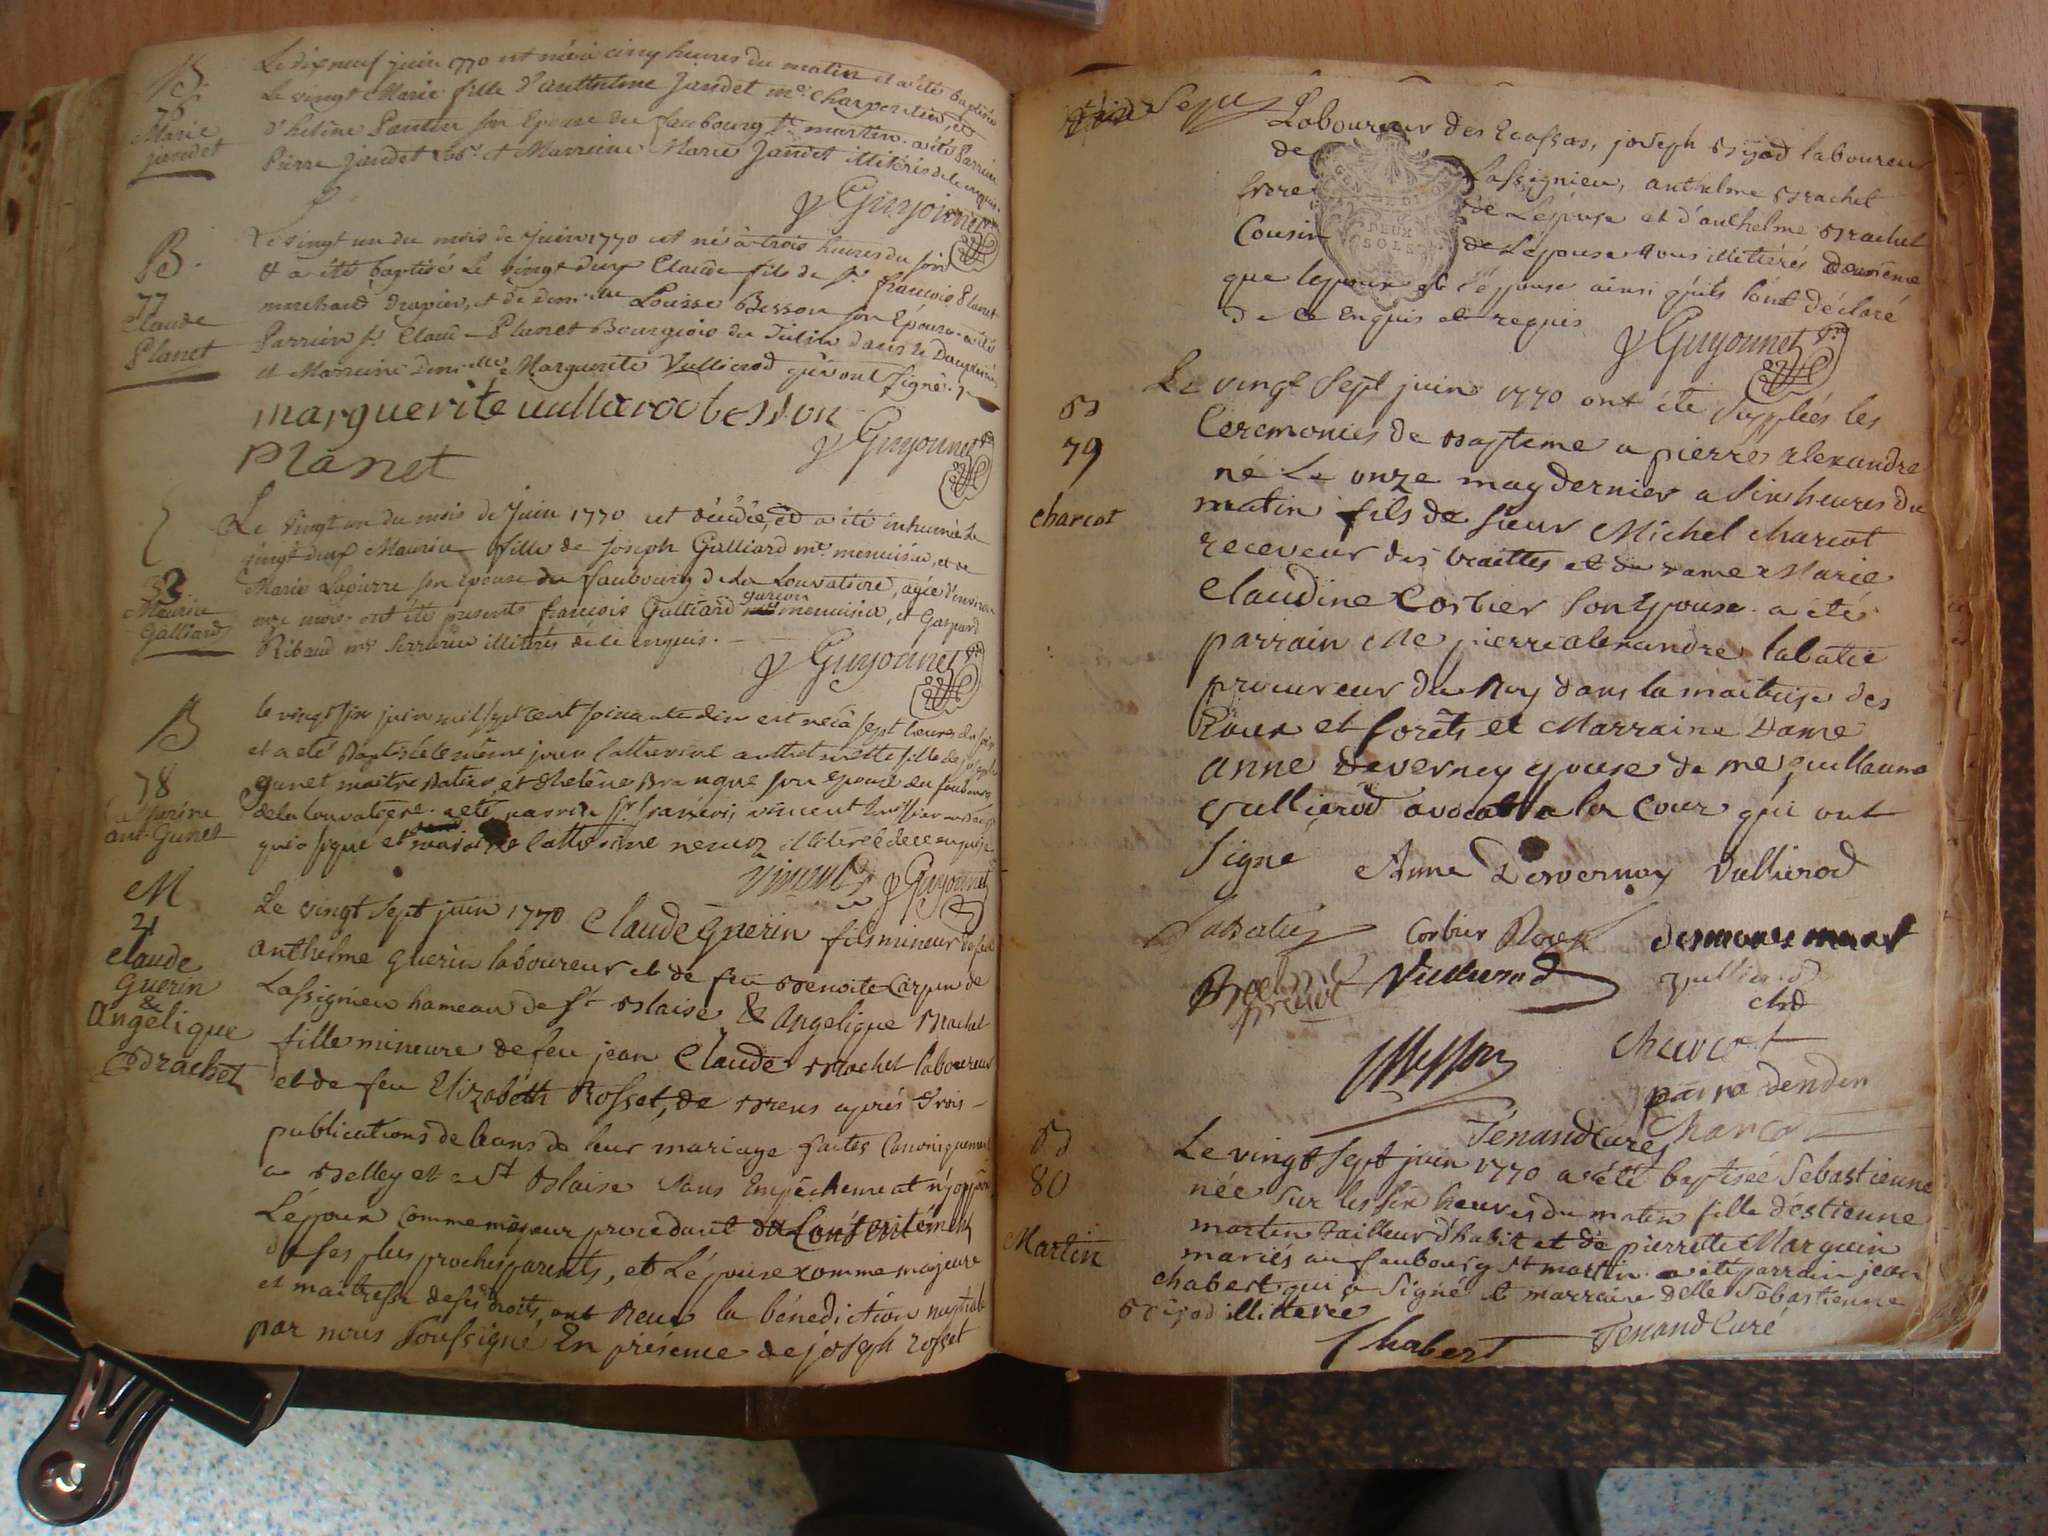 B
76
Marie
jandet
Le dixneuf juin 1770 est née à cinq heures du matin et a été baptisée
Le vingt Marie fille d'anthelme Jandet me charpentier, et
d'heléne Pantin son Epouse du faubourg st martin. a été Parrain
Pierre Jandet et Marreine Marie Jandet illiterés de ce enquis.
Guyonnet
B
77
Claude
Planet
Le vingt un du mois de Juin 1770 est né à trois heures du soir
& a été baptisé Le vingt deux Claude fils de sr. françois Planet
marchand drapier, et de dem.lle Louise Besson son Epouse. a été
Parrein sr. Claude Planet Bourgeois du Tulin dans le Dauphiné,
et Marreine dem.lle Marguerite Vullierod qui ont signé.
marguerite vullierod besson
Planet
Guyonnet
33
Maurice
Galliard
Le vingt un du mois de Juin 1770 est décédée, et a été inhumée Le
vingt deux Maurice fille de Joseph Galliard me. menuisier, et de
Marie Lapierre son Epouse du faubourg de La Louvatiere, agée d'environ
onze mois. ont été presents françois Galliard garçon menuisier, et Gaspard
Ribaud me serrurier illiterés de ce enquis.
Guyonnet
B
78
ant. Gunet
le vingt six juin mil sept cent soixante dix est née à sept heures du soir
et a été Baptisée le même jour Catherine anthelmette fille de joseph
gunet maitre Batier, et d'helêne son epouse du faubourg
de la louvatiere. a été parrain sr. françois vincent huissier
qui a signé et Catherine illiterée de ce enquise
vincent Guyonnet
M
21
Claude
Guerin
&
Angélique
Brachet
Le vingt sept juin 1770 Claude Guerin fils mineur de feu
anthelme guerin laboureur et de feu Benoite Carpin de
Lassignieu hameau de St Blaise & Angelique Brachet
fille mineure de feu jean Claude Brachet laboureur
et de feu Elizabeth Rosset, de Brens aprés trois
publications de bans de leur mariage faites Canoniquement
a Belley et a St Blaise sans Empéchement n'y opposition
L'époux comme mineur procedant du Consentement
de ses plus proches parents, et L'épouse comme majeure
et maitresse de ses droits, ont Recus la bénédiction nuptiale
par nous Soussigné En présence de joseph rosset
Laboureur des Ecassas, joseph Bijod laboureur
de Lassignieu, anthelme Brachet
frere de L'épouse et d'anthelme Brachet
Cousin de L'épouse tous illétérés de même
GEN DE DIJON
DEUX
SOLS
que lepoux et l'épouse ainsi qu'ils l'ont déclaré
de ce Enquis et requis
Guyonnet
B
79
charcot
Le vingt sept juin 1770 ont été suppleés les
Ceremonies de Bapteme a pierre alexandre
né Le onze may dernier a six heures du
matin fils de sieur Michel charcot
receveur des traittes et de dame Marie
Claudine Corbier son Epouse. a été
parrain Me pierre alexandre labatie
procureur du Roy dans la maitrise des
Eaux et forêts et Marraine Dame
anne devernay epouse de me guillaume
vullierod avocat a la Cour qui ont
signé Anne Devernay Vullierod
Labatie Corbier Roux
Vullierod
Vullierod
Charcot
parra denden
Tenand Curé Charcot
B
80
Martin
Le vingt sept juin 1770 a été baptisée Sebastienne
née sur les six heures du matin fille d'estienne
martin tailleur d'habit et de pierrette Marguin
mariés au faubourg st martin. a été parrain jean
chabert qui a signé et marraine delle Sebastienne
Brijod illiterée
Chabert Tenand Curé